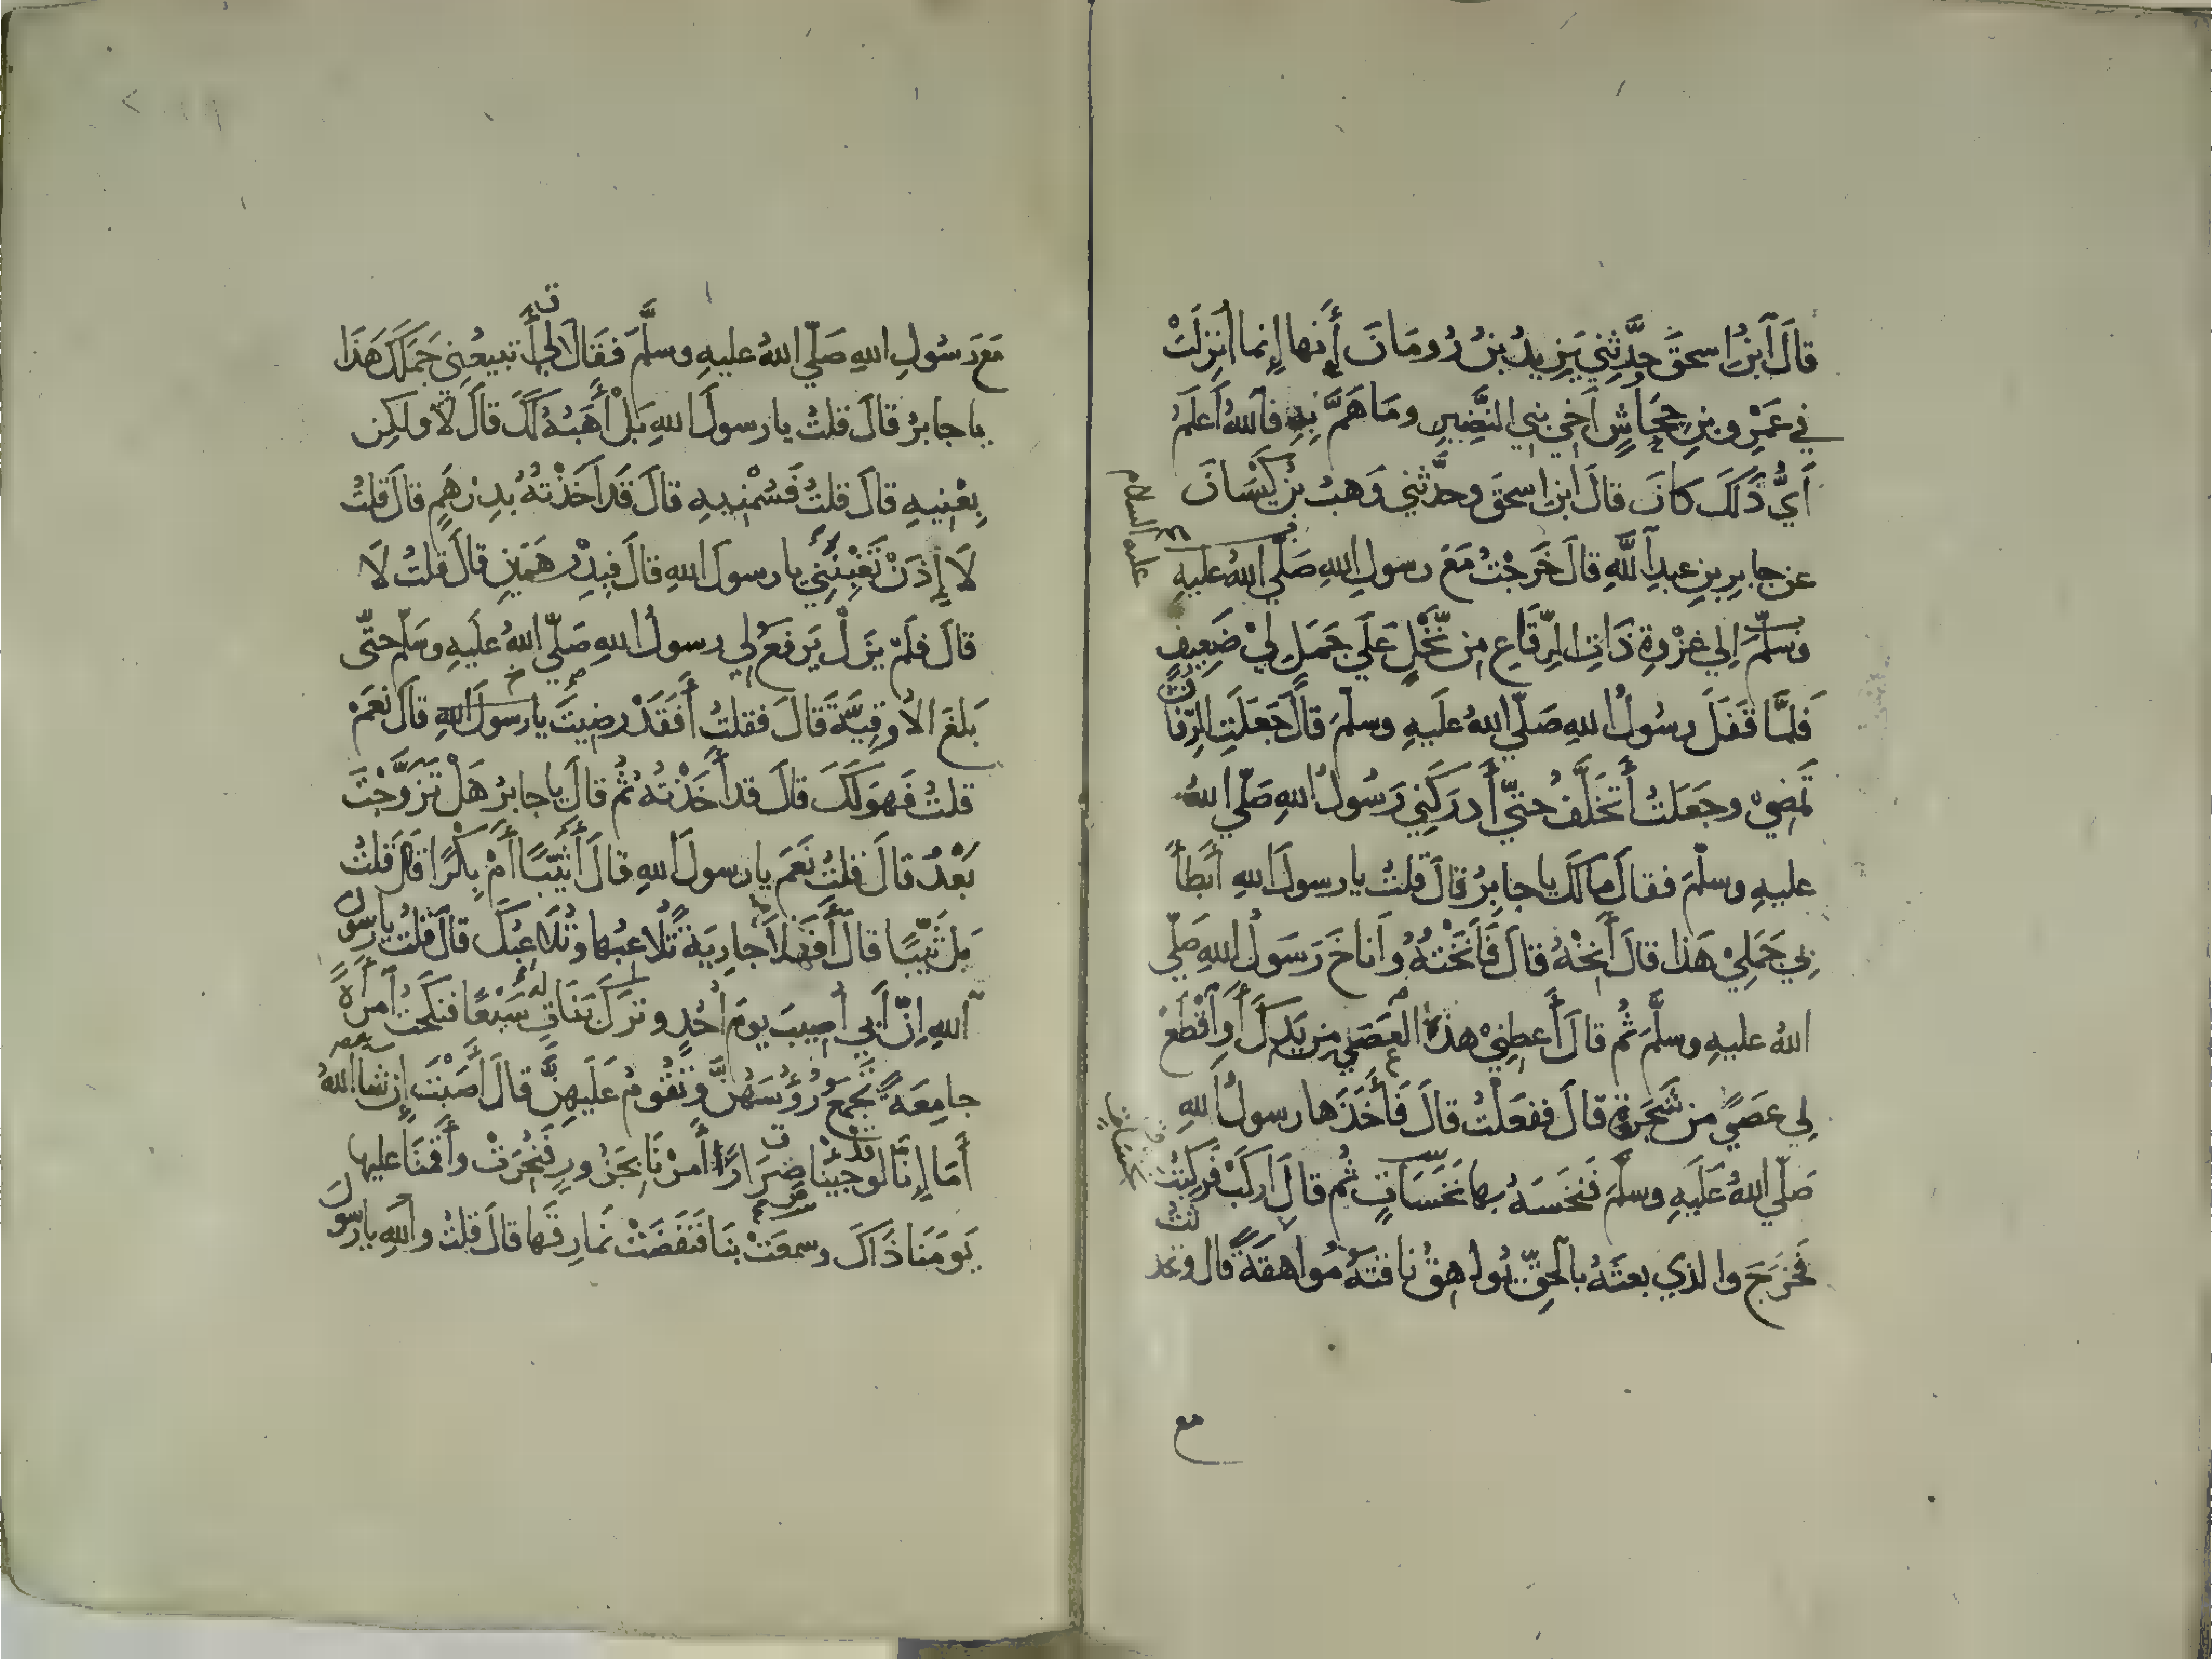 قَالَ ابْنُ اسحقَ حدَّثني يَزِيدُ بْنُ رُومَانَ أَنها إِنما أُنزِلَتْ
في عَمْرِو بنِ جِحَاشٍ أَخي بني النَّضِيرِ وما هَمَّ بِهِ فاللهُ أَعلَمُ
أَيُّ ذَلكَ كانَ قالَ ابنُ اسحقَ وحدَّثني وَهبُ بنُ كَيْسَانَ
عن جابرِ بنِ عبدِ اللَّهِ قالَ خَرَجْتُ مَعَ رسولِ اللهِ صَلّي اللهُ عليهِ
وسلَّمَ إلي غزْوةِ ذَاتِ الرِّقَاعِ من نَّخْلٍ عَلَي جَمَلٍ لِيْ ضَعِيفٍ
فَلمَّا قَفَلَ رسُولُ اللهِ صَلّي اللهُ عَلَيهِ وسلمَ قالَ جَعَلَتِ الرِّفَاقُ
تَمضِي وجَعَلتُ أَتَخَلَّفُ حتيّ أَدرَكَنِي رَسُولُ اللهِ صَلّي اللهُ
عليهِ وسلّمَ فقالَ مالَكَ يا جابِرُ قالَ قلتُ يا رسولَ اللهِ أَبطأَ
بِي جَمَلِيْ هَذا قالَ أَنِخْهُ قالَ فَأَنَخْتُهُ وأَناخَ رَسَولُ اللهِ صَلّي
اللهُ عليهِ وسلَّمَ ثُم قالَ أَعطِنِيْ هذهِ العَصَي مِن يَدِكَ أَوِ اقْطَعْ
لِي عَصًي من شَجَرَةٍ قالَ ففعَلْتُ قالَ فَأَخَذَها رسولُ اللهِ
صَلّي اللهُ عَلَيهِ وسلّمَ فَنخَسَهُ بها نَخَسَاتٍ ثُم قالَ اركَبْ فَركِبْتُ
فَخرَجَ والذي بعثَهُ بالحقِّ يُواهِقُ ناقتَهُ مُواهَقَةً قال و
عليه السلام
مع
مَعَ رَسُولِ اللهِ صَلّي اللهُ عليهِ وسلَّمَ فَقَالَ لِي أَتبيعُنِي جَمَلَكَ هَذَا
يا جابرُ قالَ قلتُ يا رسولَ اللهِ بَلْ أَهَبُهُ لَكَ قالَ لا ولَكِن
بِعْنِيهِ قالَ قلتُ فَسُمْنِيهِ قالَ قَد أَخَذْتهُ بدِرْهَمٍ قالَ قلتُ
لَا إِذَنْ تَغْبِنُنِي يا رسولَ اللهِ قالَ فبِدِرْهَمَينِ قالَ قلتُ لَا
قالَ فلَمْ يَزَلْ يَرفَعُ لِي رسولُ اللهِ صَلّي اللهُ عَلَيهِ وسَلّم حتّى
بَلغَ الأُوقِيَّةَ قَالَ فقلتُ أَفَقَدْ رضِيتَ يا رسولَ اللهِ قالَ نعَمْ
قلتُ فَهوَ لَكَ قالَ قد أَخَذْتهُ ثُمّ قالَ يا جابرُ هَلْ تَزَوَّجْتَ
بَعْدُ قالَ قلتُ نَعَمَ يا رسولَ اللهِ قالَ أَثَيِّبًا أَمْ بِكْرًا قالَ قلتُ
بَل ثَيِّبًا قالَ أَفَهَلا جاريَةً تُلاعبُها وتُلَاعبُكَ قالَ قلتُ يا رسولَ
اللهِ إِنّ أَبي أُصِيبَ يومَ أُحُدٍ وتركَ بَنَاتٍ لهُ سَبْعًا فنكَحتُ امرأَةً
جامِعَةً تجمعُ رُؤُسَهُنَّ وتَقُومُ عَلَيهِنَّ قالَ أَصَبْتَ إن شا اللهُ
أَمَا إِنا لوقد جِئنا ضِرَارًا أَمرْنا بجَزُورٍ فَنُحِرَتْ وأَقمنَا عليها
يَومَنَا ذَاكَ وسمِعَتْ بنَا فَنَفَضَتْ نَمَارِقَها قالَ قلتُ واللهِ يا رسولَ